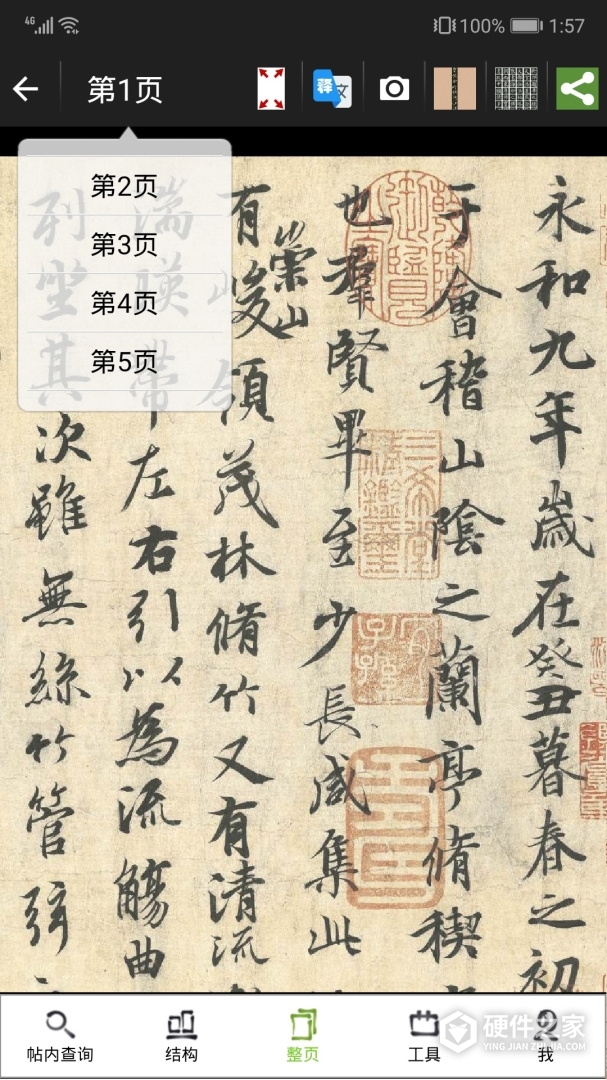 4G 100% 1:57
第1页
释 文
第2页
第3页
第4页
第5页
永和九年歲在癸丑暮春之初
于會稽山陰之蘭亭脩稧
也羣賢畢至少長咸集此
有崇山峻領茂林脩竹又有清流
湍暎帶左右引以為流觴曲
列坐其次雖無絲竹管弦
三希堂精鑑璽
宜子孫
帖内查询
结构
整页
工具
我
硬件之家
YINGJIANZHIJIA.COM